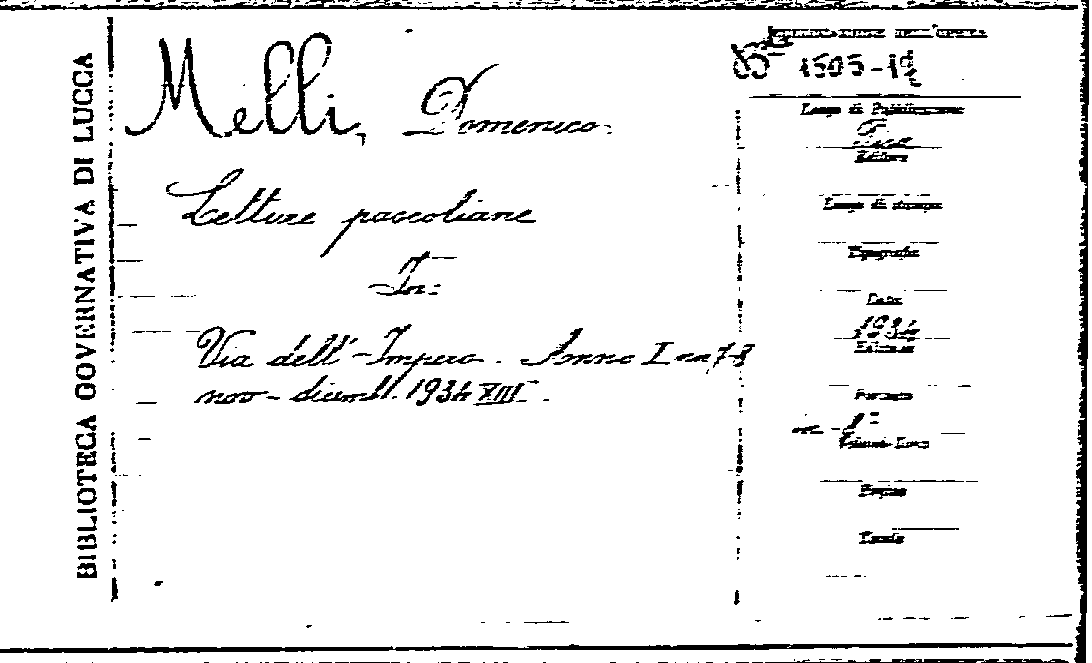 BIBLIOTECA GOVERNATIVA DI LUCCA
Melli, Domenico.
Letture pascoliane
In:
Via dell'Impero. Anno I nn 7-8
nov-dicemb. 1934 XIII.
1505-
Luogo di Pubblicazione
Pisa
Editore
Luogo di stampa
Tipografia
Data
1934
Edizione
Formato
in-8°
Pagine
Tavole